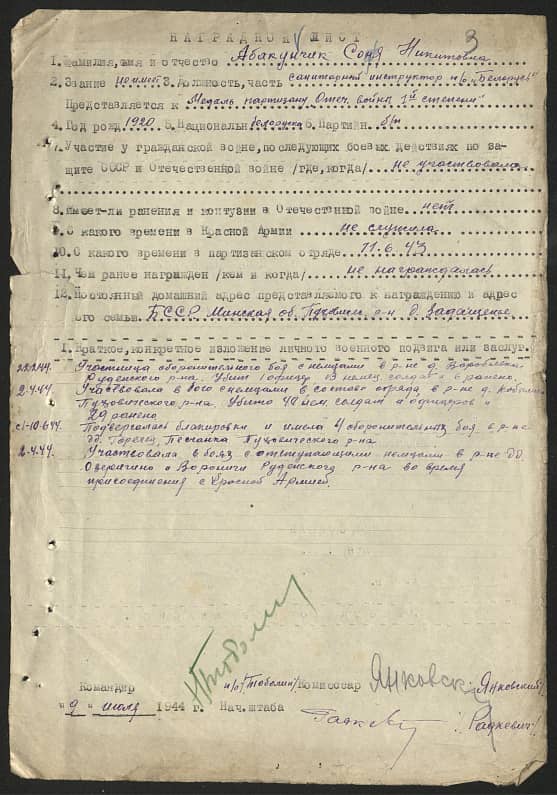 НАГРАДНОЙ ЛИСТ
3
1. Фамилия, имя и отчество Абакунчик Соня Никитовна
2. Звание не имеет 3. Должность, часть санитарный инструктор п/о "Беларусь"
Представляется к Медаль партизану Отеч. войны 1й степени"
4. Год рожд 1920 5. Национальн белоруска 6. Партийн б/п
7. Участие у гражданской войне, последующих боевых действиях по за-
щите СССР и Отечественной войне /где, когда/ не участвовала
8. Имеет-ли ранения и контузии в Отечественной войне нет
9. С какого времени в Красной Армии не служила
10. С какого времени в партизанском отряде 11.6.43
11. Чем ранее награжден /кем и когда/ не награждалась
12. Постоянный домашний адрес представляемого к награждению и адрес
его семьи БССР Минская об. Пухович. р-н д.
1. Краткое, конкретное изложение личного военного подвига или заслуг
Участница оборонительного боя с немцами в р-не д.
Руденского р-на. Убит 1 офицер 13 немец. солдат ранено.
2.4.44. Участвовала в бою с немцами в составе отряда в р-не д.
Пуховического р-на. Убито нем. солдат и офицеров и
29 ранено
Подвергалась блокировки и имела 4 оборонительных боя в р-не
дд. Горелец, Песчанка Пуховического р-на
Участвовала в боях с отступающими немцами в р-не дд.
и Вороничи Руденского р-на во время
присоединения с Красной Армией.
Командир п/о /Тоболин/ Комиссар Янковский /Янковский/
"9" июля 1944 г. Нач. штаба Радкевич /Радкевич/